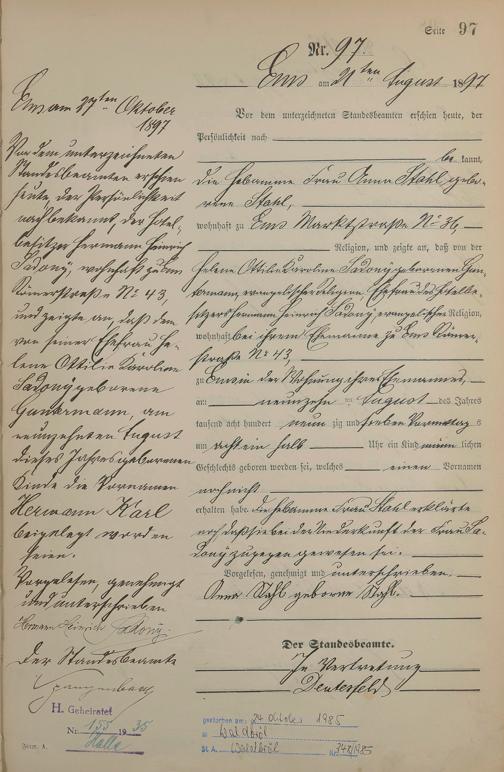 Seite 97
Nr. 97.
Ems am 21ten August 1897
Vor dem unterzeichneten Standesbeamten erschien heute, der
Persönlichkeit nach
be kannt,
die Hebamme Frau Anna Stahl gebo-
rene Stahl,
wohnhaft zu Ems Marktstraße No 36,
Religion, und zeigte an, daß von der
Helene Ottilie Karoline Sadony geborenen Gun-
termann, evangelischer Religion, Ehefrau des Hotelbe-
sitzers Hermann Heinrich Sadony, evangelischer Religion,
wohnhaft bei ihrem Ehemanne zu Ems Römer-
straße No 43,
zu Ems in der Wohnung ihres Ehemannes,
am neunzehn ten August des Jahres
tausend acht hundert neun zig und sieben Vormittags
um acht ein halb Uhr ein Kind männ lichen
Geschlechts geboren worden sei, welches einen Vornamen
noch nicht
erhalten habe. Die Hebamme Frau Stahl erklärte
noch daß sie bei der Niederkunft der Frau Sa-
dony zugegen gewesen sei.
Vorgelesen, genehmigt und unterschrieben.
Anna Stahl geborne Stahl.
Der Standesbeamte.
In Vertretung
Ems am 27ten Oktober
1897
Vor dem unterzeichneten
Standesbeamten erschien
heute, der Persönlichkeit
nach bekannt, der Hotel-
besitzer Hermann Heinrich
Sadony, wohnhaft zu Ems
Römerstraße No 43,
und zeigte an, daß dem
von seiner Ehefrau He-
lene Ottilie Karoline
Sadony geborene
Guntermann, am
neunzehnten August
dieses Jahres geborenen
Kinde die Vornamen
Hermann Karl
beigelegt worden
seien.
Vorgelesen, genehmigt
und unterschrieben
Hermann Heinrich Sadony.
Der Standesbeamte
H. Geheiratet
Nr. 155 1935
Halle
Form. A.
gestorben am: 24. Oktober 1985
in Waldbröl
St. A. Waldbröl Nr. 348/1985